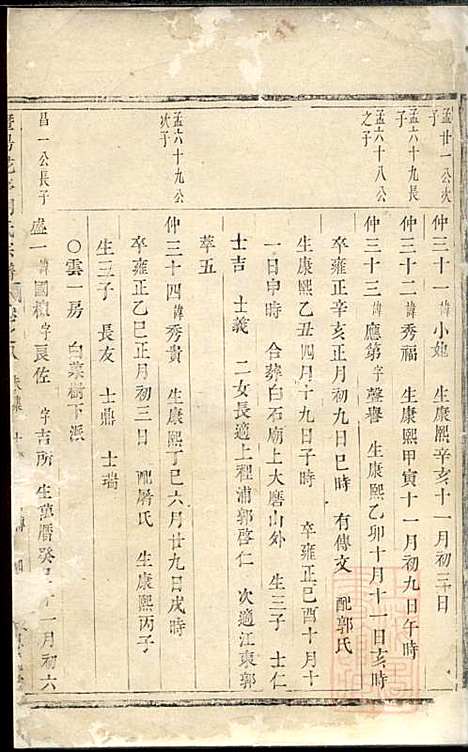 孟廿一公次子
仲三十一 諱小\u5979 生康熙辛亥十一月初三日
孟六十九長子
仲三十二 諱秀福 生康熙甲寅十一月初九日午時
孟六十八公之子
仲三十三 諱應第 字聲譽 生康熙乙卯十月十一日亥時
卒雍正辛亥正月初九日巳時 有傳文 配郭氏
生康熙乙丑四月十九日子時 卒雍正己酉十月十
一日申時 合葬白石廟上大磨山外 生三子 士仁
士吉 士義 二女長適上程浦郭啓仁 次適江東郭
萃五
孟六十九公次子
仲三十四 諱秀貴 生康熙丁巳六月廿九日戌時
卒雍正乙巳正月初三日 配屠氏 生康熙丙子
生三子 長友 士鼎 士瑞
〇雲一房 白菓樹下派
昌一公長子
盛一 諱國楨 字良佐 字吉所 生萬曆癸巳十一月初六